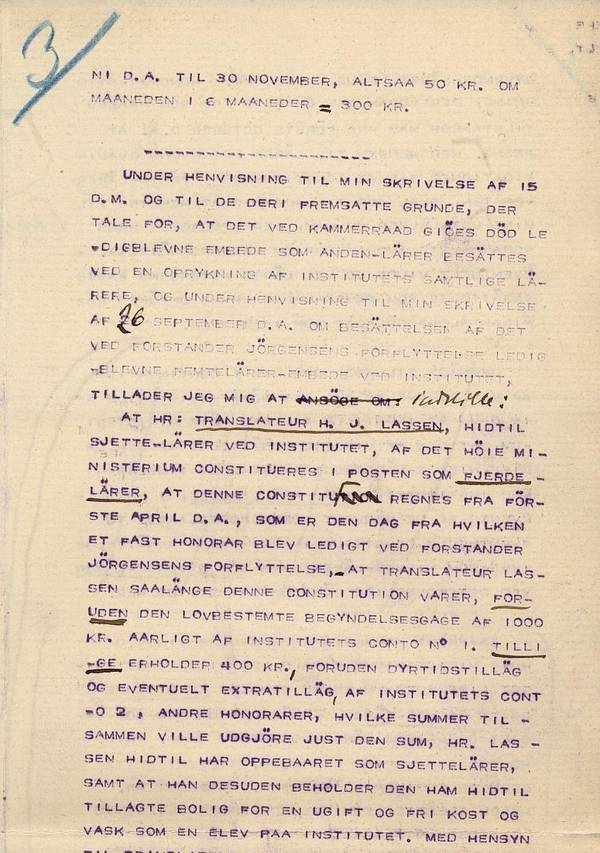 3
NI D.A. TIL 30 NOVEMBER, ALTSAA 50 KR. OM
MAANEDEN I 6 MAANEDER = 300 KR.
UNDER HENVISNING TIL MIN SKRIVELSE AF 15
D.M. OG TIL DE DERI FREMSATTE GRUNDE, DER
TALE FOR, AT DET VED KAMMERRAAD GIÖES DÖD LE
-DIGBLEVNE EMBEDE SOM ANDEN-LÄRER BESÄTTES
VED EN OPRYKNING AF INSTITUTETS SAMTLIGE LÄ-
RERE, OG UNDER HENVISNING TIL MIN SKRIVELSE
AF 26 SEPTEMBER D.A. OM BESÄTTELSEN AF DET
VED FORSTANDER JÖRGENSENS FORFLYTTELSE LEDIG
-BLEVNE FEMTELÄRER-EMBEDE VED INSTITUTET,
TILLADER JEG MIG AT ANSÖGE OM: indstille:
AT HR: TRANSLATEUR H. J. LASSEN, HIDTIL
SJETTE-LÄRER VED INSTITUTET, AF DET HÖIE MI-
NISTERIUM CONSTITUERES I POSTEN SOM FJERDE-
LÄRER, AT DENNE CONSTITUTION REGNES FRA FÖR-
STE APRIL D.A., SOM ER DEN DAG FRA HVILKEN
ET FAST HONORAR BLEV LEDIGT VED FORSTANDER
JÖRGENSENS FORFLYTTELSE,-AT TRANSLATEUR LAS-
SEN SAALÄNGE DENNE CONSTITUTION VARER, FOR-
UDEN DEN LOVBESTEMTE BEGYNDELSESGAGE AF 1000
KR. AARLIGT AF INSTITUTETS CONTO Nº 1. TILLI
-GE ERHOLDER 400 KR., FORUDEN DYRTIDSTILLÄG
OG EVENTUELT EXTRATILLÄG, AF INSTITUTETS CONT
-O 2, ANDRE HONORARER, HVILKE SUMMER TIL-
SAMMEN VILLE UDGJÖRE JUST DEN SUM, HR. LAS-
SEN HIDTIL HAR OPPEBAARET SOM SJETTELÄRER,
SAMT AT HAN DESUDEN BEHOLDER DEN HAM HIDTIL
TILLAGTE BOLIG FOR EN UGIFT OG FRI KOST OG
VASK SOM EN ELEV PAA INSTITUTET. MED HENSYN